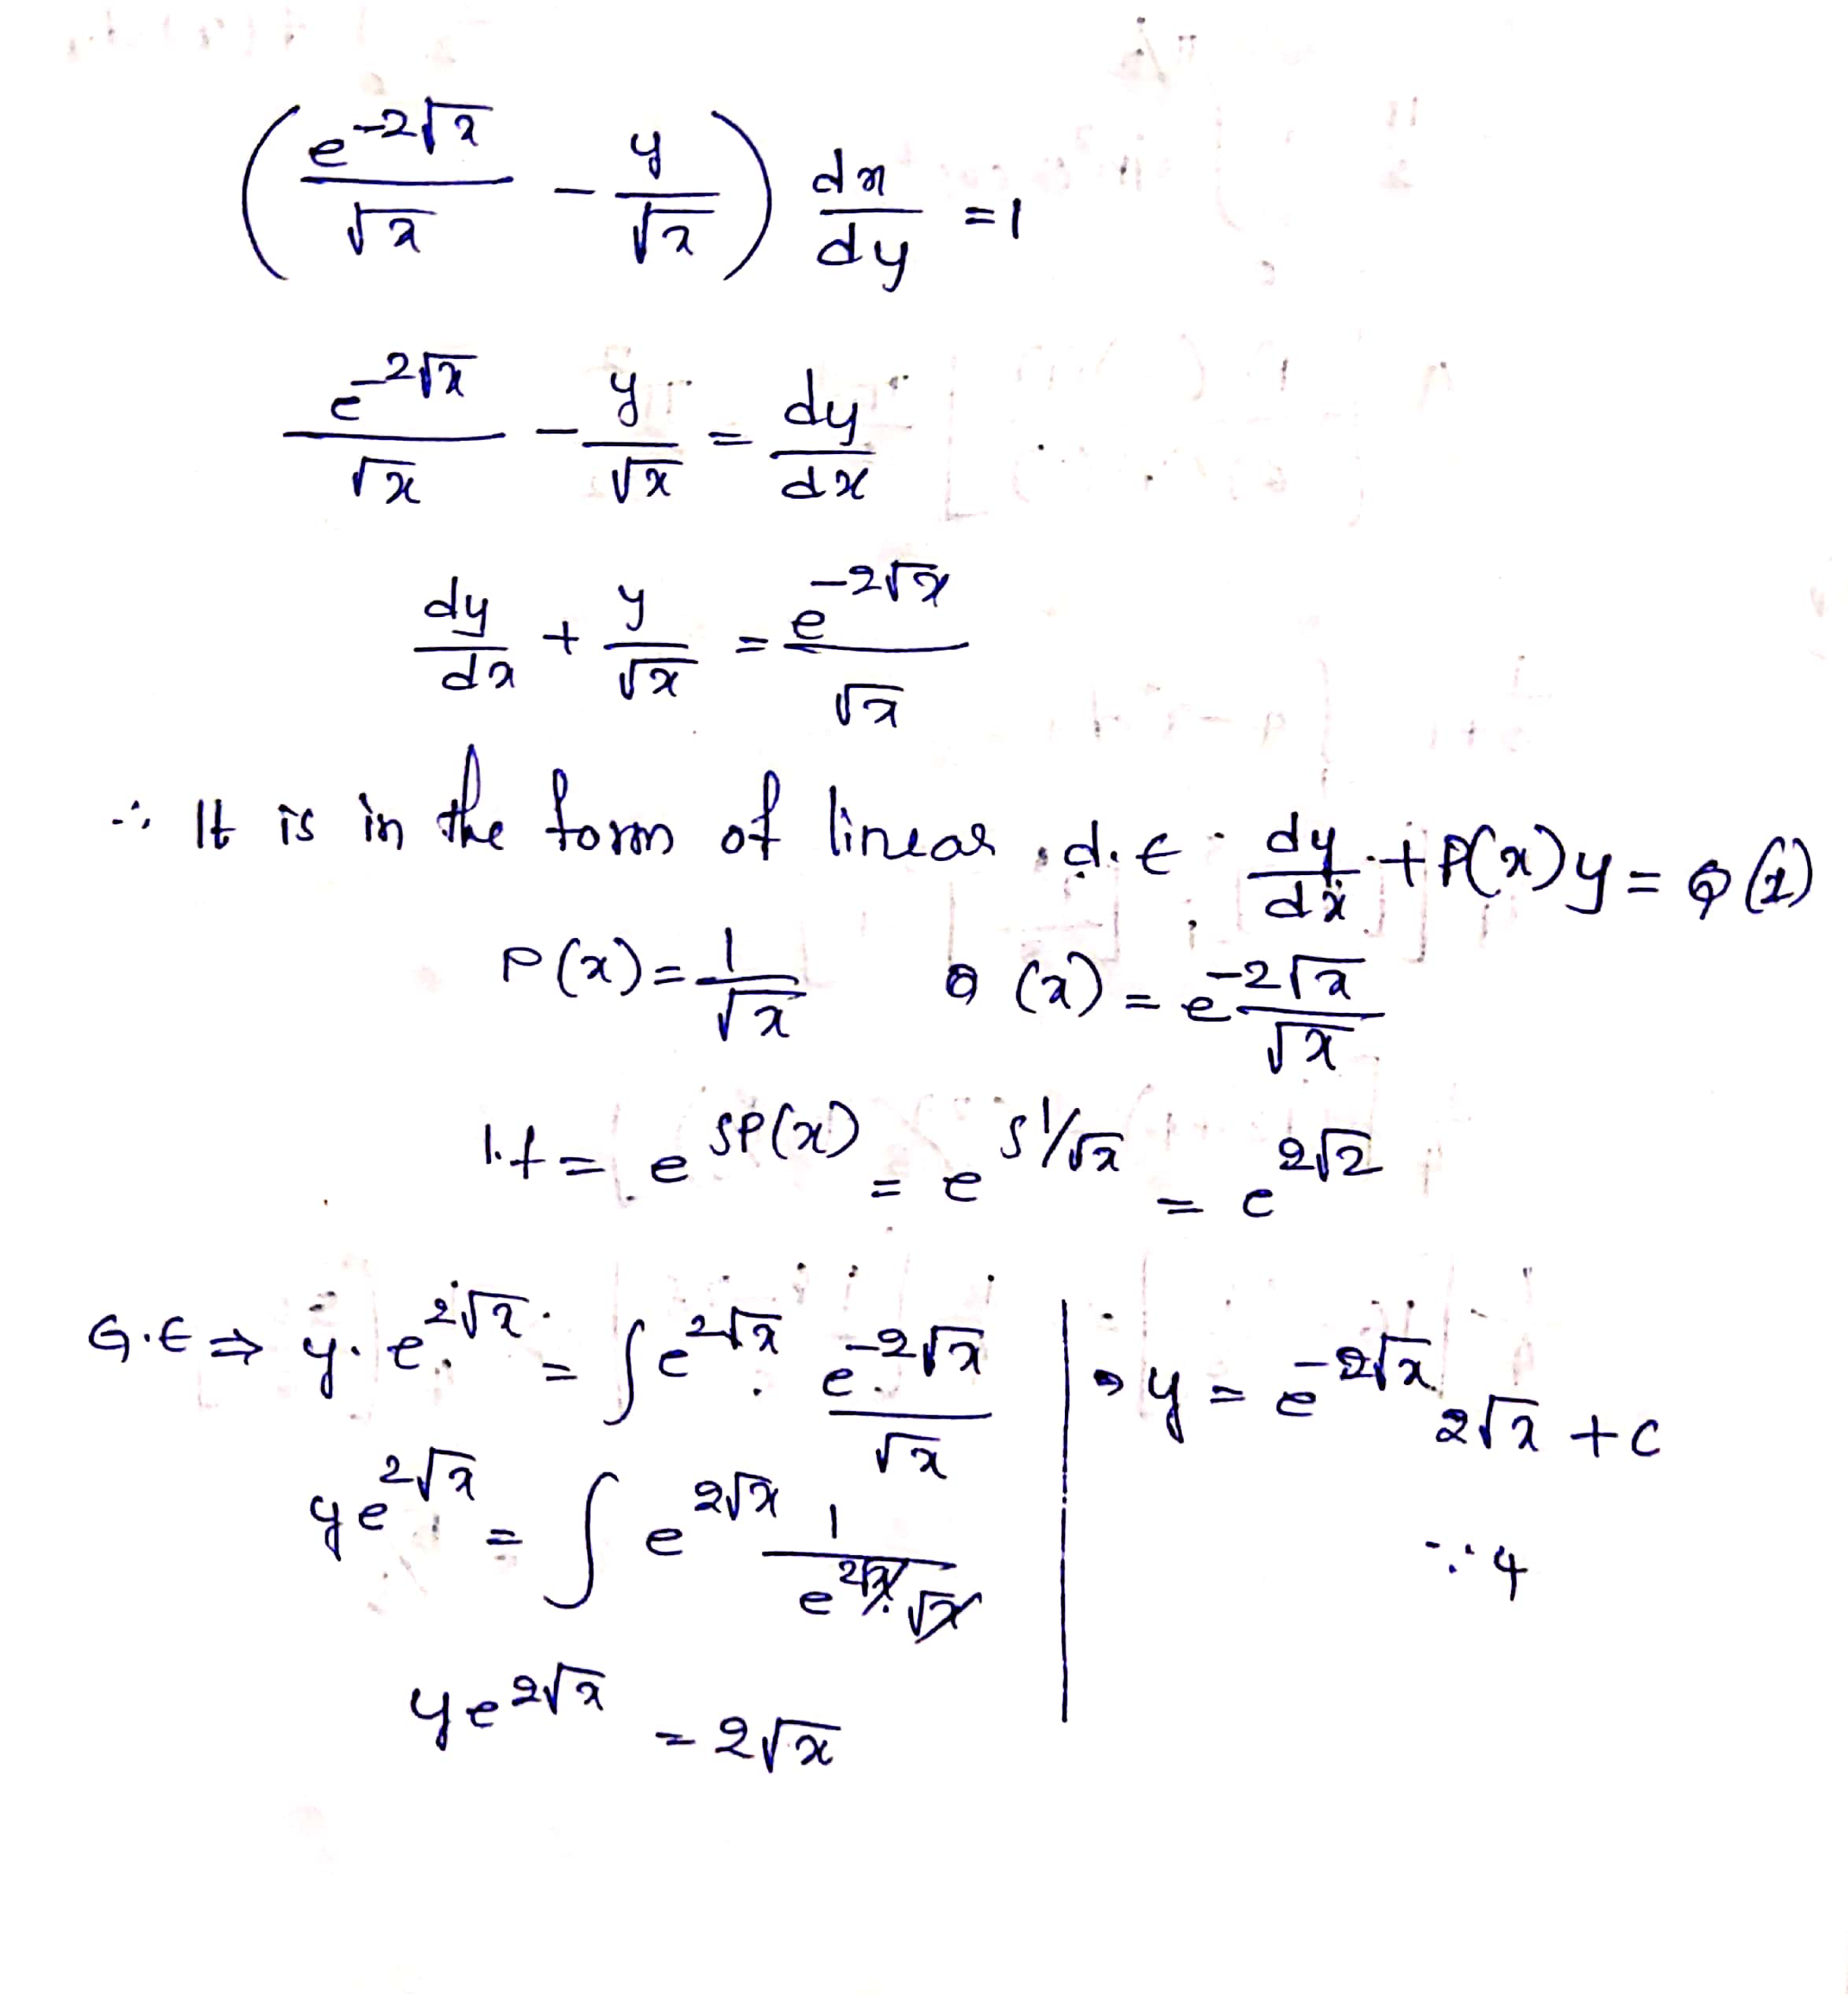 (e^{-2√x}/√x - y/√x) dx/dy = 1
e^{-2√x}/√x - y/√x = dy/dx
dy/dx + y/√x = e^{-2√x}/√x
∴ It is in the form of linear d.E dy/dx + P(x)y = Q(x)
P(x) = 1/√x Q(x) = e^{-2√x}/√x
I.f = e^{∫P(x)} = e^{∫1/√x} = e^{2√2}
G.E ⇒ y. e^{2√x} = ∫e^{2√x} . e^{-2√x}/√x
ye^{2√x} = ∫ e^{2√x} 1/(e^{2√x}.√x)
ye^{2√x} = 2√x
⇒ y = e^{-2√x} 2√x + c
∵ 4